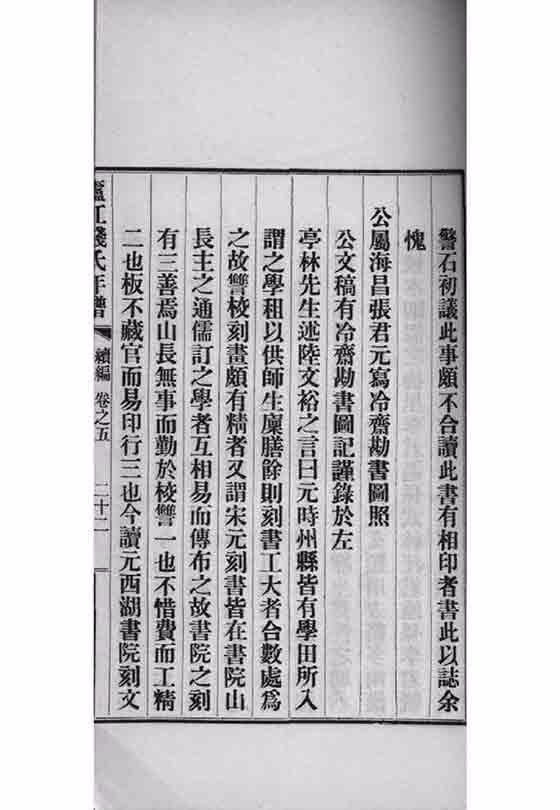 警石初議此事頗不合讀此書有相印者書此以誌余
愧
公屬海昌張君元寫冷齋勘書圖照
公文稿有冷齋勘書圖記謹錄於左
亭林先生述陸文裕之言曰元時州縣皆有學田所入
謂之學租以供師生廩膳餘則刻書工大者合數處為
之故讐校刻畫頗有精者又謂宋元刻書皆在書院山
長主之通儒訂之學者互相易而傳布之故書院之刻
有三善焉山長無事而勤於校讐一也不惜費而工精
二也板不藏官而易印行三也今讀元西湖書院刻文
廬江錢氏年譜 續編 卷之五 二十二